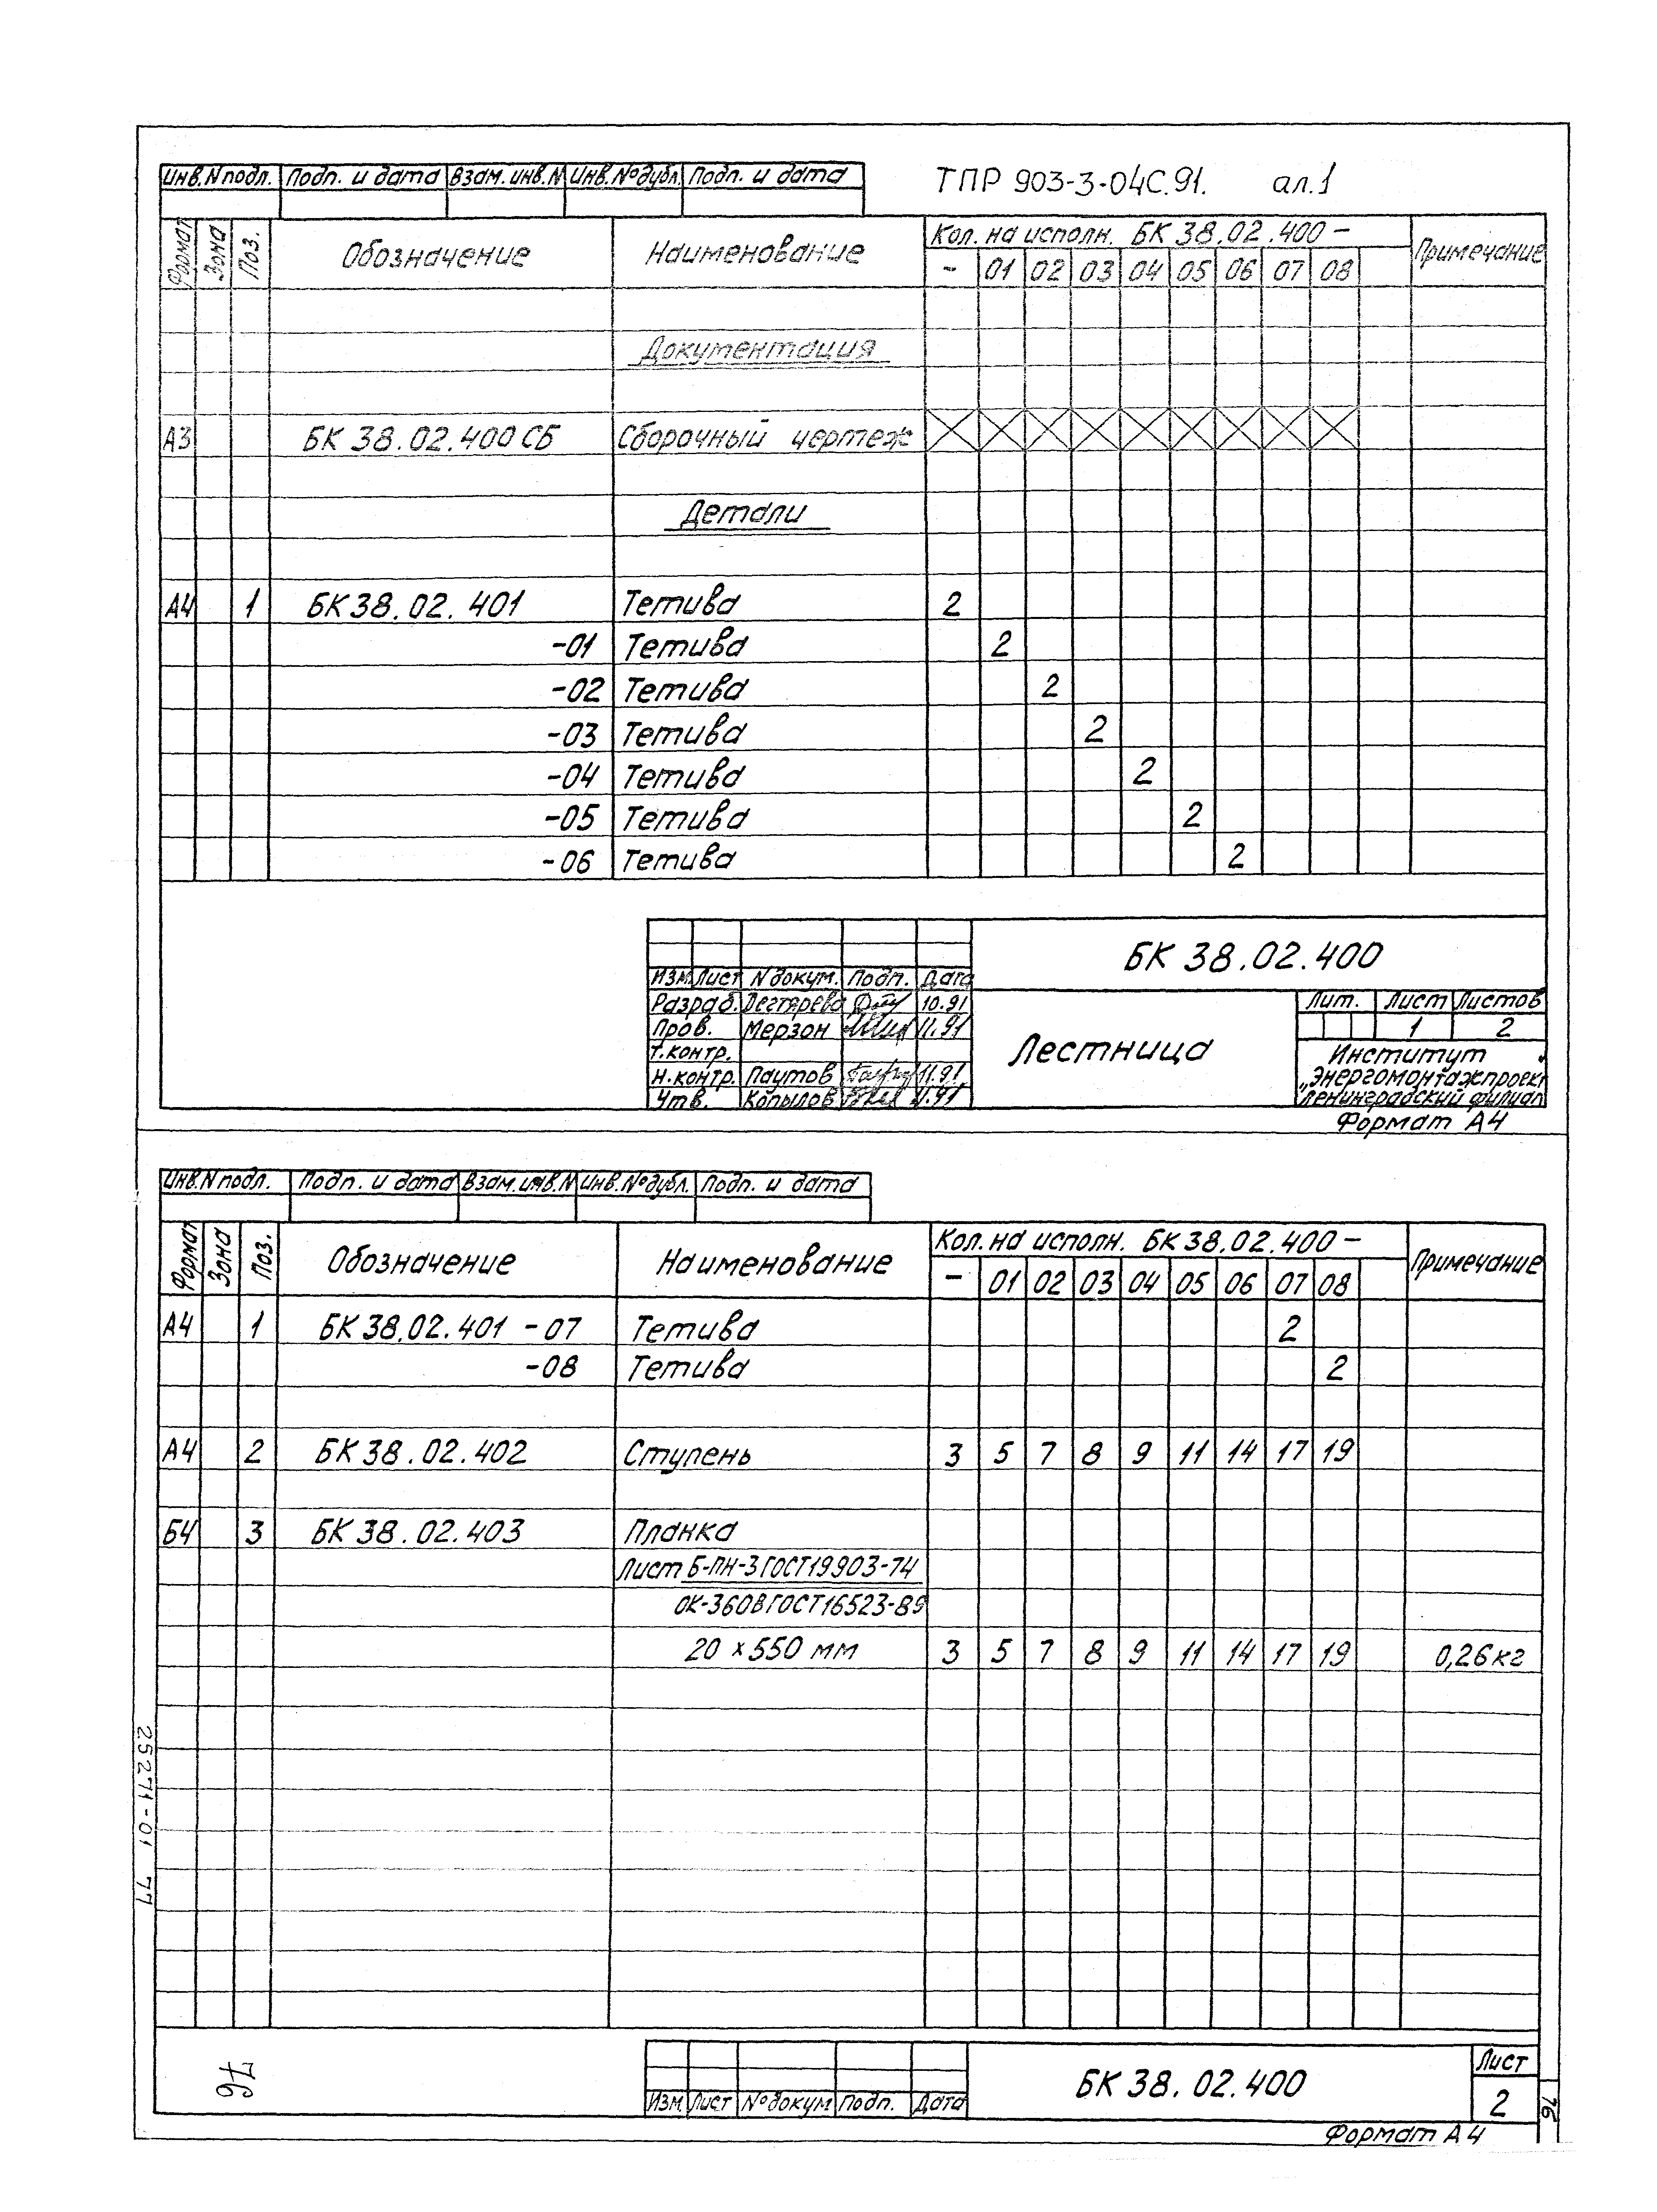 ТПР 903-3-04С.91. ал.1
Инв.N подл. Подп. и дата Взам.инв.N Инв.№дубл. Подп. и дата
Формат Зона Поз. Обозначение Наименование Кол. на исполн. БК 38.02.400 – Примечание
– 01 02 03 04 05 06 07 08
Документация
А3 БК 38.02.400 СБ Сборочный чертеж
Детали
А4 1 БК 38.02.401 Тетива 2
-01 Тетива 2
-02 Тетива 2
-03 Тетива 2
-04 Тетива 2
-05 Тетива 2
-06 Тетива 2
БК 38.02.400
Изм. Лист N докум. Подп. Дата
Разраб. Дегтярева 10.91
Пров. Мерзон 11.91
Т.контр.
Н.контр. Паутов 11.91
Утв. Копылов 11.91
Лестница
Лит. Лист Листов
1 2
Институт
"Энергомонтажпроект
Ленинградский филиал
Формат А4
Инв.N подл. Подп. и дата Взам.инв.N Инв.№дубл. Подп. и дата
Формат Зона Поз. Обозначение Наименование Кол. на исполн. БК 38.02.400 – Примечание
– 01 02 03 04 05 06 07 08
А4 1 БК 38.02.401 -07 Тетива 2
-08 Тетива 2
А4 2 БК 38.02.402 Ступень 3 5 7 8 9 11 14 17 19
Б4 3 БК 38.02.403 Планка
Лист Б-ПН-3 ГОСТ19903-74
ОК-360В ГОСТ16523-89
20 х 550 мм 3 5 7 8 9 11 14 17 19 0,26 кг
25271-01 77
76
Изм. Лист №докум Подп. Дата
БК 38.02.400
Лист
2
76
Формат А4